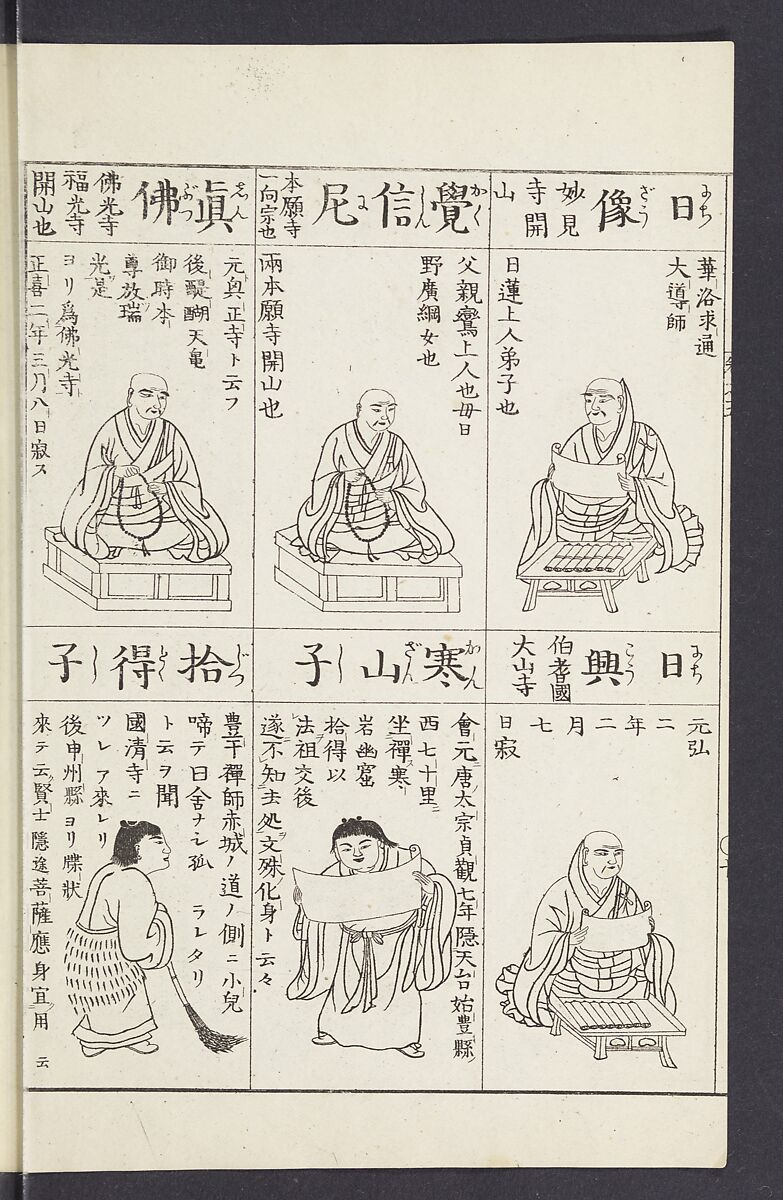 日像
にち
ざう
妙見
寺開
山
華洛求通
大導師
日蓮上人弟子也
覺信尼
かく
しん
に
本願寺
一向宗也
父親鸞上人也毋日
野廣綱女也
兩本願寺開山也
眞佛
しん
ぶつ
佛光寺
福光寺
開山也
元興正寺ト云フ
後醍醐天
御時本
尊放瑞
光是
ヨリ爲佛光寺
正喜二年三月八日寂ス
日興
にち
こう
伯耆國
大山寺
元弘
二
年
二
月
七
日寂
寒山子
かん
ざん
し
會元唐太宗貞觀七年隠天台始豊縣
西七十里ニ
坐禪ス寒
岩幽窟
拾得以
法祖交後
遂不知去処文殊化身ト云々
拾得子
じつ
とく
し
豊干禪師赤城ノ道ノ側ニ小兒
啼テ曰舍ナシ孤ラレタリ
ト云ヲ聞
國清寺ニ
ツレア來レリ
後申州縣ヨリ牒状
來テ云賢士隱遁菩薩應身宜用云